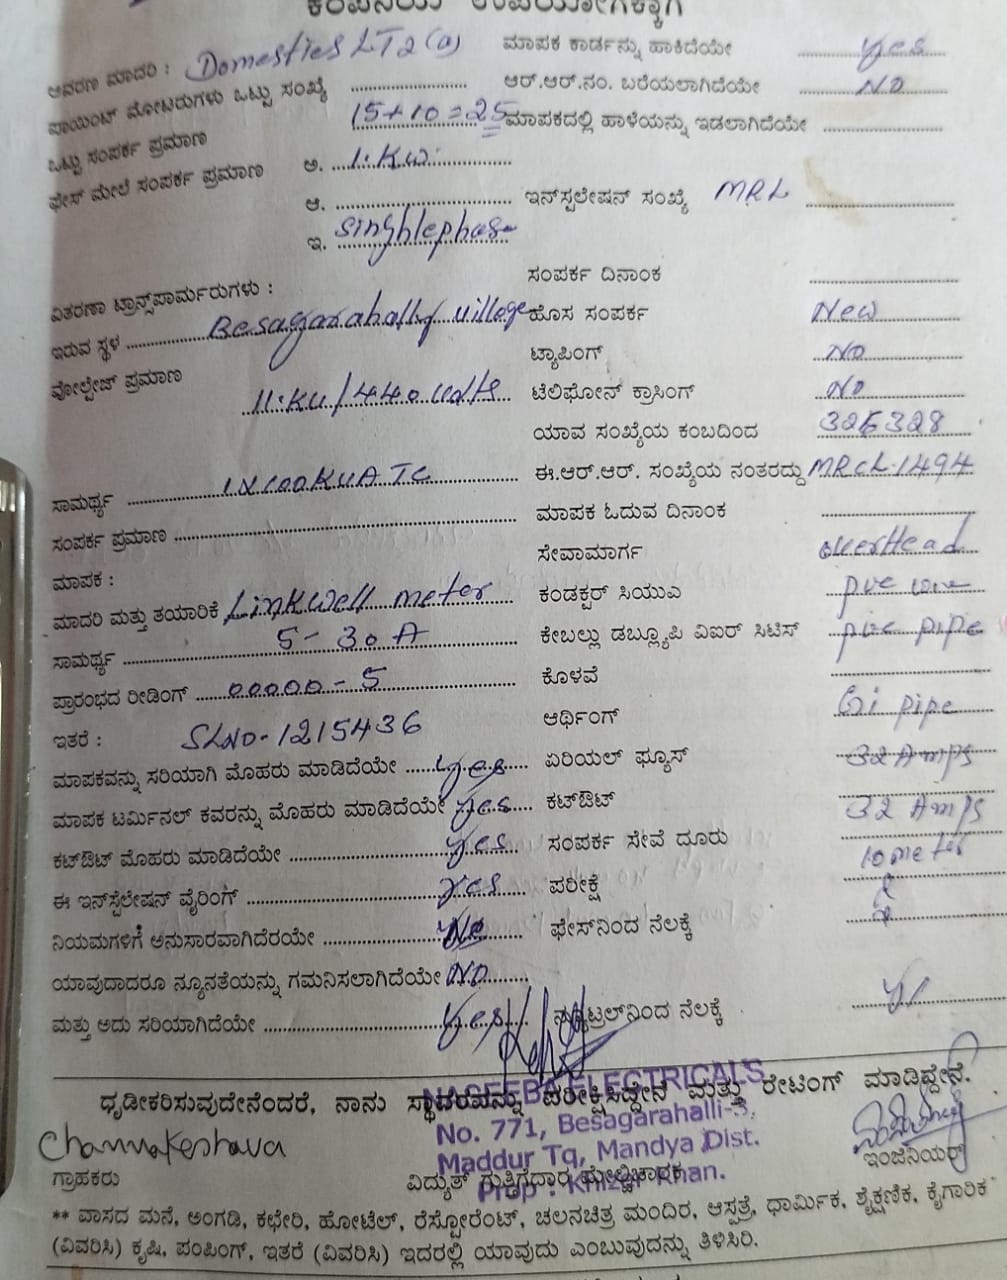 ಕಂಪನಿಯ ಉಪಯೋಗಕ್ಕಾಗಿ
ಆವರಣ ಮಾದರಿ : Domestics LT2(a) ಮಾಪಕ ಕಾರ್ಡನ್ನು ಹಾಕಿದೆಯೇ yes
ಪಾಯಿಂಟ್ ಮೋಟರುಗಳು ಒಟ್ಟು ಸಂಖ್ಯೆ ಆರ್.ಆರ್.ನಂ. ಬರೆಯಲಾಗಿದೆಯೇ NO
ಒಟ್ಟು ಸಂಪರ್ಕ ಪ್ರಮಾಣ 15+10=25 ಮಾಪಕದಲ್ಲಿ ಹಾಳೆಯನ್ನು ಇಡಲಾಗಿದೆಯೇ
ಫೇಸ್ ಮೇಲೆ ಸಂಪರ್ಕ ಪ್ರಮಾಣ ಅ. 1.KW
ಆ. ಇನ್‌ಸ್ಪಲೇಷನ್ ಸಂಖ್ಯೆ MRL
ಇ. singhlephase
ವಿತರಣಾ ಟ್ರಾನ್ಸ್‌ಪಾರ್ಮರುಗಳು : ಸಂಪರ್ಕ ದಿನಾಂಕ
ಇರುವ ಸ್ಥಳ Besagarahally village ಹೊಸ ಸಂಪರ್ಕ New
ಟ್ಯಾಪಿಂಗ್ NO
ವೋಲ್ಟೇಜ್ ಪ್ರಮಾಣ 11.KV/440 volts ಟೆಲಿಫೋನ್ ಕ್ರಾಸಿಂಗ್ NO
ಯಾವ ಸಂಖ್ಯೆಯ ಕಂಬದಿಂದ 326328
ಸಾಮರ್ಥ್ಯ 1X100KVA TC ಈ.ಆರ್.ಆರ್. ಸಂಖ್ಯೆಯ ನಂತರದ್ದು MRCL.1494
ಸಂಪರ್ಕ ಪ್ರಮಾಣ ಮಾಪಕ ಓದುವ ದಿನಾಂಕ
ಮಾಪಕ : ಸೇವಾಮಾರ್ಗ overHead
ಮಾದರಿ ಮತ್ತು ತಯಾರಿಕೆ Linkwell meter ಕಂಡಕ್ಟರ್ ಸಿಯುಎ pvc wire
ಸಾಮರ್ಥ್ಯ 5-30A ಕೇಬಲ್ಲು ಡಬ್ಲ್ಯೂಪಿ ವಿಐರ್ ಸಿಟಿಸ್ pvc pipe
ಪ್ರಾರಂಭದ ರೀಡಿಂಗ್ 00000-5 ಕೊಳವೆ
ಇತರೆ : SLNO-1215436 ಆರ್ಥಿಂಗ್ Gi pipe
ಮಾಪಕವನ್ನು ಸರಿಯಾಗಿ ಮೊಹರು ಮಾಡಿದೆಯೇ yes ಏರಿಯಲ್ ಫ್ಯೂಸ್ 32 Amps
ಮಾಪಕ ಟರ್ಮಿನಲ್ ಕವರನ್ನು ಮೊಹರು ಮಾಡಿದೆಯೇ yes ಕಟ್‌ಔಟ್ 32 Amps
ಕಟ್‌ಔಟ್ ಮೊಹರು ಮಾಡಿದೆಯೇ yes ಸಂಪರ್ಕ ಸೇವೆ ದೂರು 10 meter
ಈ ಇನ್‌ಸ್ಪೆಲೇಷನ್ ವೈರಿಂಗ್ yes ಪರೀಕ್ಷೆ
ನಿಯಮಗಳಿಗೆ ಅನುಸಾರವಾಗಿದೆರಯೇ ಫೇಸ್‌ನಿಂದ ನೆಲಕ್ಕೆ
ಯಾವುದಾದರೂ ನ್ಯೂನತೆಯನ್ನು ಗಮನಿಸಲಾಗಿದೆಯೇ NO
ಮತ್ತು ಅದು ಸರಿಯಾಗಿದೆಯೇ yes ನ್ಯೂಟ್ರಲ್‌ನಿಂದ ನೆಲಕ್ಕೆ
ಧೃಡೀಕರಿಸುವುದೇನೆಂದರೆ, ನಾನು ಸ್ಥಾವರವನ್ನು ಪರೀಕ್ಷಿಸಿದ್ದೇನೆ ಮತ್ತು ರೇಟಿಂಗ್ ಮಾಡಿದ್ದೇನೆ.
NASEEBA ELECTRICALS
No. 771, Besagarahalli-3,
Maddur Tq, Mandya Dist.
Prop : Khizar Khan.
Channakeshava
ಗ್ರಾಹಕರು ವಿದ್ಯುತ್ ಗುತ್ತಿಗೆದಾರ ಮೇಲ್ವಿಚಾರಕ ಇಂಜಿನಿಯರ್
** ವಾಸದ ಮನೆ, ಅಂಗಡಿ, ಕಛೇರಿ, ಹೋಟೆಲ್, ರೆಸ್ಟೋರೆಂಟ್, ಚಲನಚಿತ್ರ ಮಂದಿರ, ಆಸ್ಪತ್ರೆ, ಧಾರ್ಮಿಕ, ಶೈಕ್ಷಣಿಕ, ಕೈಗಾರಿಕ
(ವಿವರಿಸಿ) ಕೃಷಿ, ಪಂಪಿಂಗ್, ಇತರೆ (ವಿವರಿಸಿ) ಇದರಲ್ಲಿ ಯಾವುದು ಎಂಬುವುದನ್ನು ತಿಳಿಸಿರಿ.